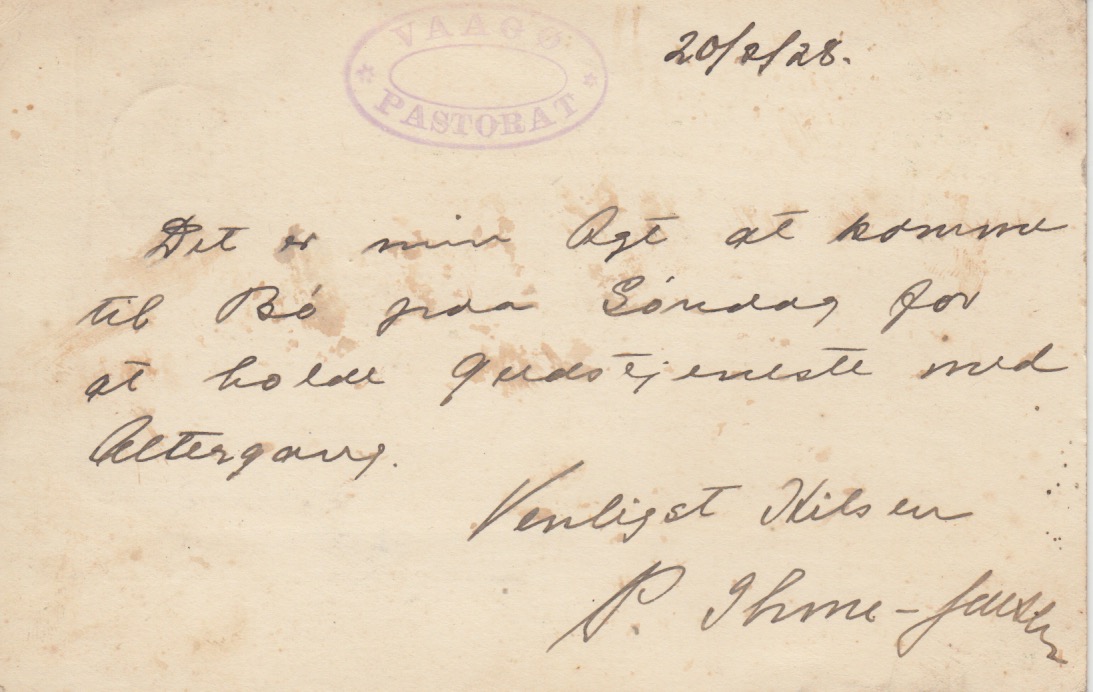 VAAGØ
PASTORAT
20/2/28.
Det er min Agt at komme
til Bó paa Söndag for
at holde Gudstjeneste med
Altergang.
Venligst Hilsen
P. Ihme-